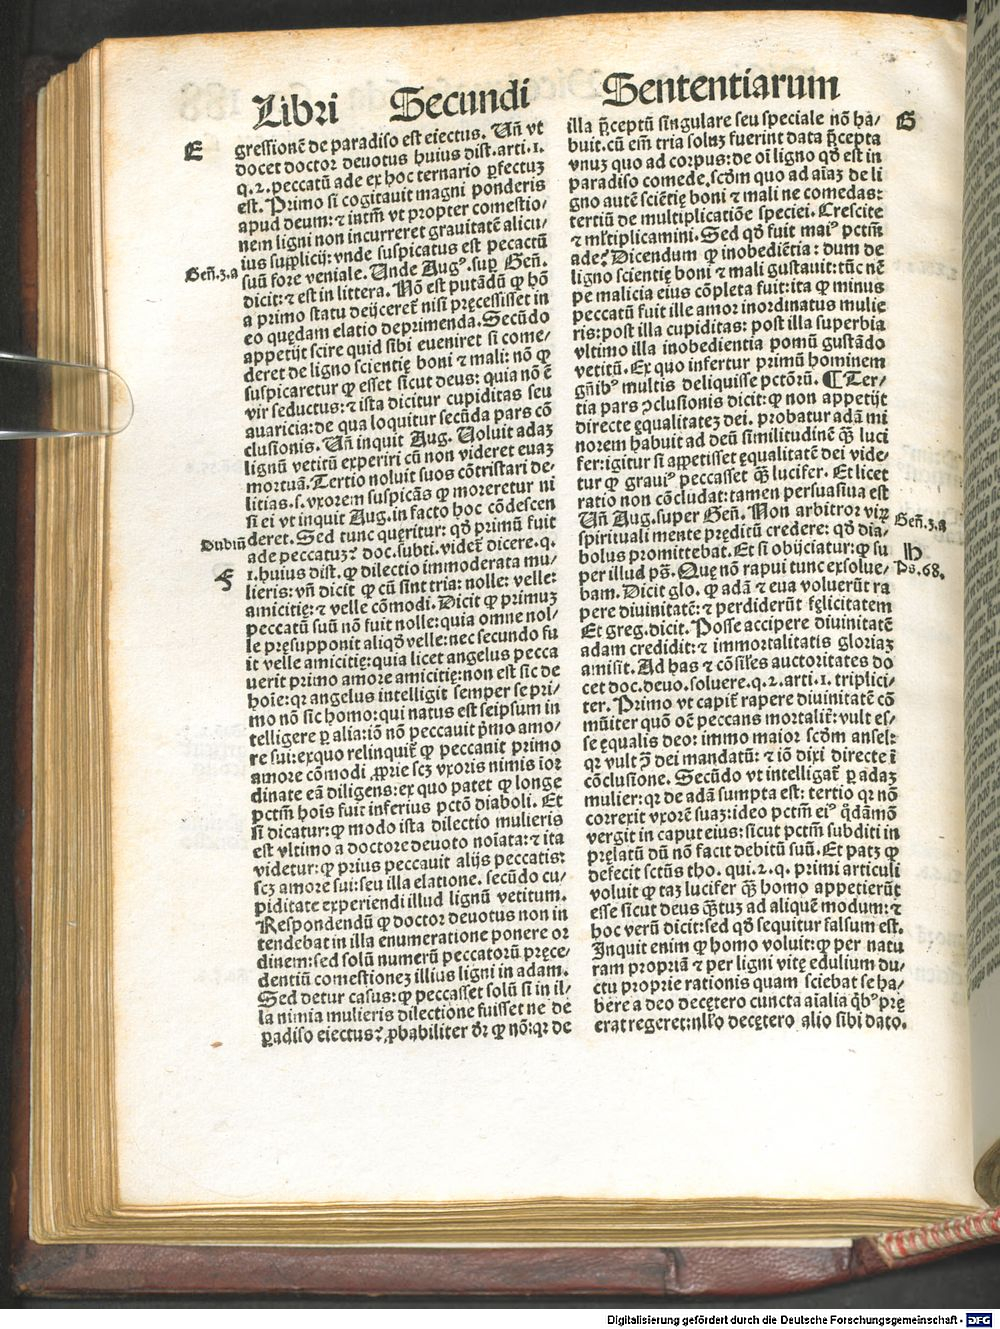 Libri Secundi Sententiarum
E
gressionē de paradiso est eiectus. Uñ vt
docet doctor deuotus huius dist. arti. 1.
q. 2. peccatū ade ex hoc ternario ꝑfectuꝫ
est. Primo si cogitauit magni ponderis
apud deum: ⁊ intm̄ vt propter comestio⸗
nem ligni non incurreret grauitatē alicu⸗
ius supplicij: vnde suspicatus est peccatū
Geñ. 3. a
suū fore veniale. Unde Augꝰ. sup Geñ.
dicit: ⁊ est in littera. Nō est putādū ꝙ hō
a primo statu deijceret̄ nisi pręcessisset in
eo quędam elatio deprimenda. Secūdo
appetijt scire quid sibi eueniret si come⸗
deret de ligno scientię boni ⁊ mali: nō ꝙ
suspicaretur ꝙ esset sicut deus: quia nō ē
vir seductus: ⁊ ista dicitur cupiditas seu
auaricia: de qua loquitur secūda pars cō
clusionis. Uñ inquit Aug. Uoluit adaꝫ
lignū vetitū experiri cū non videret euaꝫ
mortuā. Tertio noluit suos cōtristari de⸗
litias. s. vxorem suspicās ꝙ moreretur ni
si ei vt inquit Aug. in facto hoc cōdescen
Dubiū
deret. Sed tunc quęritur: qđ primū fuit
ade peccatuꝫ? doc. subti. videt̄ dicere. q.
F
1. huius dist. ꝙ dilectio immoderata mu⸗
lieris: vñ dicit ꝙ cū sint tria: nolle: velle:
amicitię: ⁊ velle cōmodi. Dicit ꝙ primuꝫ
peccatū suū nō fuit nolle: quia omne nol⸗
le pręsupponit aliqđ velle: nec secundo fu
it velle amicitię: quia licet angelus pecca
uerit primo amore amicitię: non est sic de
hoīe: qꝛ angelus intelligit semper se pri⸗
mo nō sic homo: qui natus est seipsum in
telligere ꝑ alia: iō nō peccauit p̄mo amo⸗
re sui: exquo relinquit̄ ꝙ peccauit primo
amore cōmodi ꝓprie scꝫ vxoris nimis ior
dinate eā diligens: ex quo patet ꝙ longe
pctm̄ hoīs fuit inferius pctō diaboli. Et
si dicatur: ꝙ modo ista dilectio mulieris
est vltimo a doctore deuoto noīata: ⁊ ita
videtur: ꝙ prius peccauit alijs peccatis:
scꝫ amore sui: seu illa elatione. secūdo cu⸗
piditate experiendi illud lignū vetitum.
Respondendū ꝙ doctor deuotus non in
tendebat in illa enumeratione ponere or
dinem: sed solū numerū peccatorū pręce⸗
dentiū comestioneꝫ illius ligni in adam.
Sed detur casus: ꝙ peccasset solū si in il⸗
la nimia mulieris dilectione fuisset ne de
ꝑadiso eiectus? ꝓbabiliter đr ꝙ nō: qꝛ de
illa p̄ceptū singulare seu speciale nō ha⸗
G
buit. cū em̄ tria soluꝫ fuerint data p̄cepta
vnuꝫ quo ad corpus: de oī ligno qđ est in
paradiso comede. scđm quo ad aīaꝫ de li
gno autē sciētię boni ⁊ mali ne comedas:
tertiū de multiplicatiōe speciei. Crescite
⁊ ml̄tiplicamini. Sed qđ fuit maiꝰ pctm̄
ade? Dicendum ꝙ inobediētia: dum de
ligno scientię boni ⁊ mali gustauit: tūc nē
pe malicia eius cōpleta fuit: ita ꝙ minus
peccatū fuit ille amor inordinatus mulie
ris: post illa cupiditas: post illa superbia
vltimo illa inobedientia pomū gustādo
vetitū. Ex quo infertur primū hominem
gñibꝰ multis deliquisse pctōrū. ¶ Ter⸗
tia pars ↄclusionis dicit: ꝙ non appetijt
directe ęqualitateꝫ dei. probatur adā mi
norem habuit ad deū similitudinē q̄ꝫ luci
fer: igitur si appetisset ęqualitatē dei vide⸗
tur ꝙ grauiꝰ peccasset q̄ꝫ lucifer. Et licet
ratio non cōcludat: tamen persuasiua est
Uñ Aug. super Geñ. Non arbitror viꝝ
Geñ. 3. a
spirituali mente pręditū credere: qđ dia⸗
bolus promittebat. Et si obijciatur: ꝙ su
H
per illud ps̄. Quę nō rapui tunc exsolue⸗
Ps. 68.
bam. Dicit glo. ꝙ adā ⁊ eua voluerūt ra
pere diuinitatē: ⁊ perdiderūt fęlicitatem
Et greg. dicit. Posse accipere diuinitatē
adam credidit: ⁊ immortalitatis gloriaꝫ
amisit. Ad has ⁊ cōsil̄es auctoritates do
cet doc. deuo. soluere. q. 2. arti. 1. triplici⸗
ter. Primo vt capit̄ rapere diuinitatē cō
mūiter quō oē peccans mortalit̄: vult es⸗
se ęqualis deo: immo maior scđm ansel:
qꝛ vult p̄ dei mandatū: ⁊ iō dixi directe ī
cōclusione. Secūdo vt intelligat̄ ꝑ adaꝫ
mulier: qꝛ de adā sumpta est: tertio qꝛ nō
correxit vxorē suaꝫ: ideo pctm̄ eiꝰ q̄dāmō
vergit in caput eius: sicut pctm̄ subditi in
pręlatū dū nō facit debitū suū. Et patꝫ ꝙ
defecit sctūs tho. qui. 2. q. primi articuli
voluit ꝙ taꝫ lucifer q̄ꝫ homo appetierūt
esse sicut deus q̄ꝫtuꝫ ad aliquē modum: ⁊
hoc verū dicit: sed qđ sequitur falsum est.
Inquit enim ꝙ homo voluit: ꝙ per natu
ram propriā ⁊ per ligni vitę edulium du⸗
ctu proprie rationis quam sciebat se ha⸗
bere a deo decętero cuncta aīalia q̄bꝰ prę
erat regeret: nl̄lo decętero alio sibi dato.
Digitalisierung gefördert durch die Deutsche Forschungsgemeinschaft - DFG